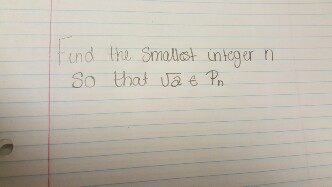 Find the smallest integer n
So that √2 ε Pn